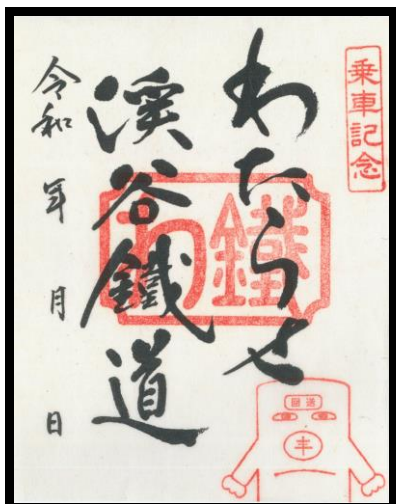 乗車記念
わたらせ
渓谷鐵道
令和 年 月 日
わ鐵